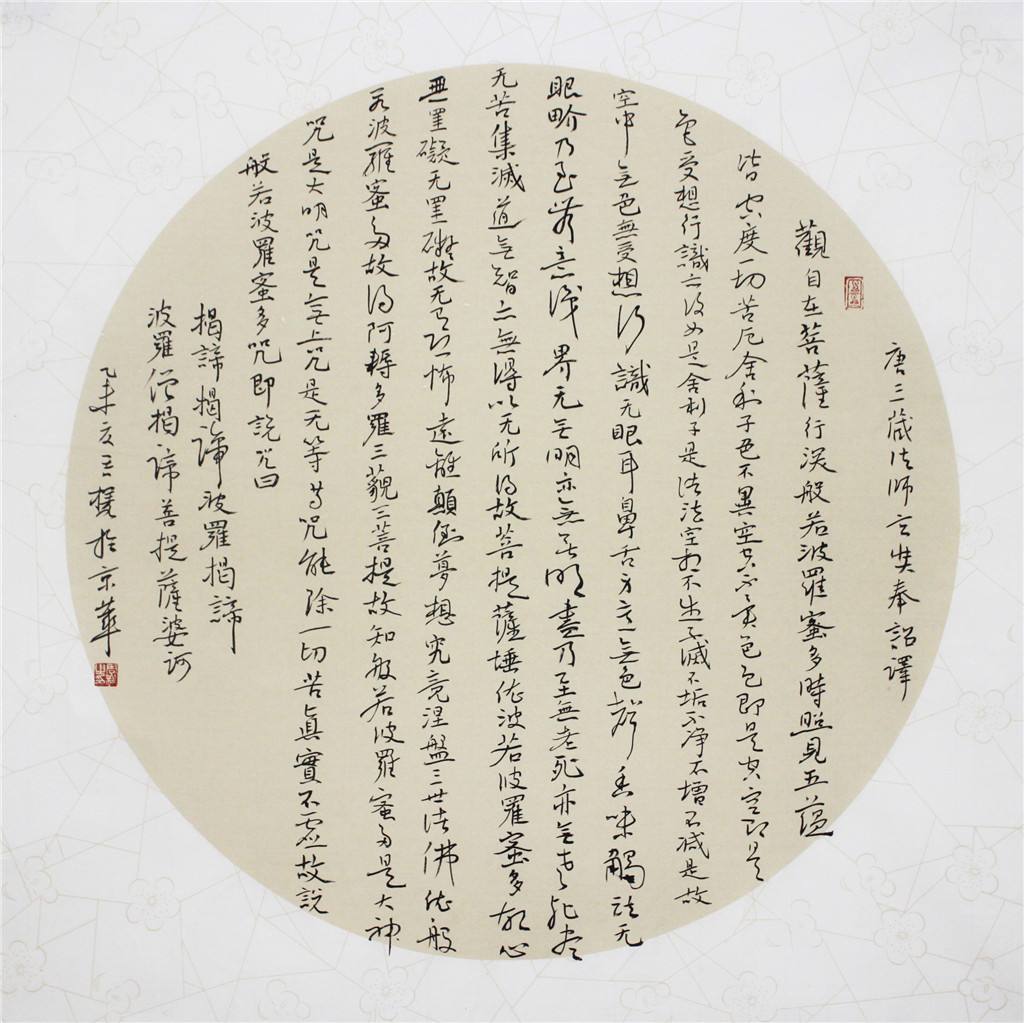 唐三藏法师玄奘奉詔譯
觀自在菩薩行深般若波羅蜜多時照見五蕴
皆空度一切苦厄舍利子色不異空空不異色色即是空空即是
色受想行識亦復如是舍利子是诸法空相不生不滅不垢不净不增不减是故
空中無色無受想行識无眼耳鼻舌身意無色聲香味觸法无
眼界乃至无意识界无無明亦無無明盡乃至無老死亦無老死尽
无苦集滅道無智亦無得以无所得故菩提薩埵依波若波羅蜜多故心
無罣礙无罣礙故无有恐怖遠離顛倒夢想究竟涅盤三世诸佛依般
若波羅蜜多故得阿耨多羅三藐三菩提故知般若波羅蜜多是大神
咒是大明咒是無上咒是无等等咒能除一切苦真實不虚故説
般若波羅蜜多咒即説咒曰
揭諦揭諦波羅揭諦
波羅僧揭諦菩提薩婆訶
乙未於京華